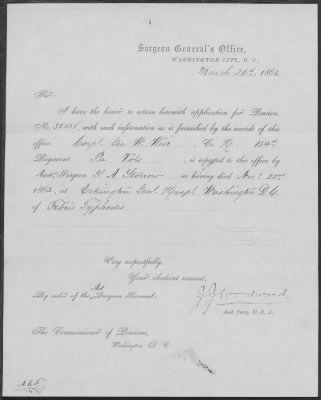 Surgeon General's Office,
WASHINGTON CITY, D. C.,
March 26th, 186
Sir:
I have the honor to return herewith application for Pension,
No. 38.036, with such information as is furnished by the records of this
office. Corpl. Geo. W. , Co. H. 134th
Regiment Pa Vols , is reported to this office by
Surgeon A. as having died Nov. 22nd
1862, at Eckington Genl. Hospl. Washington D.C.
of Febris Typhoides
Very respectfully,
Your obedient servant,
By order of the Surgeon General:
Ast. Surg. U. S. A.
The Commissioner of Pensions,
Washington, D. C.